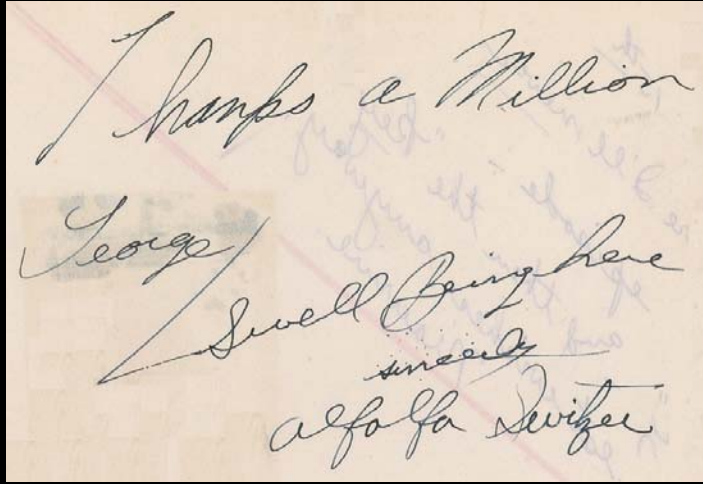 Thanks a Million
George
Swell Being here
sincerely
Alfalfa Switzer